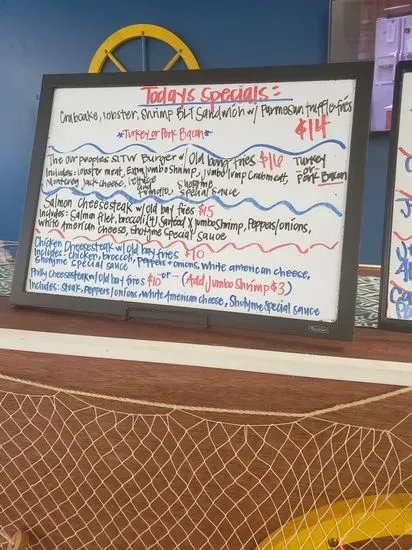 Todays Specials:
Crabcake, lobster, shrimp BLT Sandwich w/ Parmesan truffle fries
*Turkey or Pork Bacon* $14
The Our peoples SITW Burger w/ Old bay fries $16 Turkey or Pork Bacon
Includes: lobster meat, Extra Jumbo Shrimp, Jumbo lump Crabmeat,
Monterey Jack cheese, lettuce and tomato special sauce
Salmon Cheesesteak w/ Old bay fries $15
Includes: Salmon filet, broccoli, Jumbo Shrimp, Peppers/onions,
white American cheese, Shotyme Special sauce
Chicken Cheesesteak w/ Old bay fries $10
Includes: chicken, broccoli, Peppers + onions, white american cheese,
Shotyme special sauce
Philly Cheesesteak w/ Old bay fries $10 or (Add Jumbo Shrimp $3)
Includes: Steak, Peppers/onions, white American cheese, Shotyme Special sauce